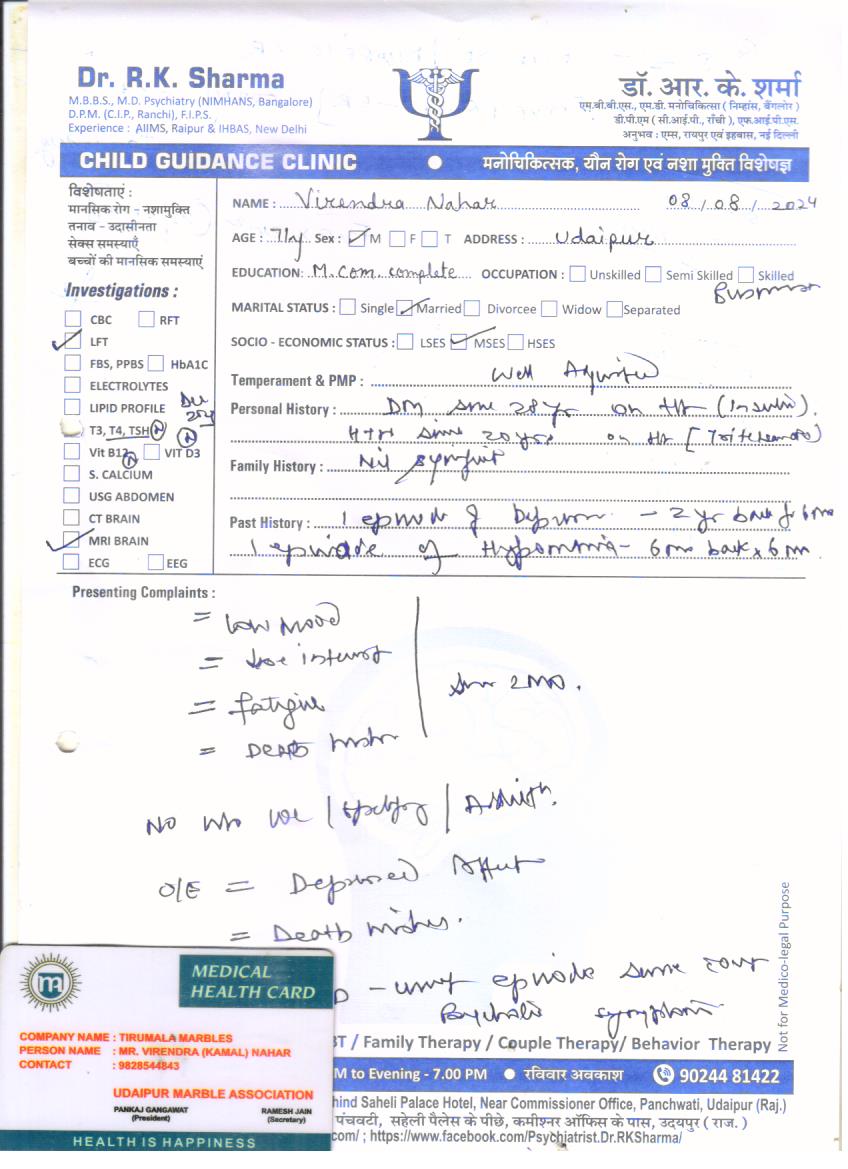 Dr. R.K. Sharma
M.B.B.S., M.D. Psychiatry (NIMHANS, Bangalore)
D.P.M. (C.I.P., Ranchi), F.I.P.S.
Experience : AIIMS, Raipur & IHBAS, New Delhi
डॉ. आर. के. शर्मा
एम.बी.बी.एस., एम.डी. मनोचिकित्सा ( निम्हांस, बैंगलोर )
डी.पी.एम ( सी.आई.पी., राँची ), एफ.आई.पी.एस.
अनुभव : एम्स, रायपुर एवं इहबास, नई दिल्ली
CHILD GUIDANCE CLINIC ● मनोचिकित्सक, यौन रोग एवं नशा मुक्ति विशेषज्ञ
विशेषताएं :
मानसिक रोग - नशामुक्ति
तनाव - उदासीनता
सेक्स समस्याएँ
बच्चों की मानसिक समस्याएं
Investigations :
CBC RFT
LFT
FBS, PPBS HbA1C
ELECTROLYTES
LIPID PROFILE
T3, T4, TSH N N
Vit B12 N VIT D3
S. CALCIUM
USG ABDOMEN
CT BRAIN
MRI BRAIN
ECG EEG
NAME : Virendra Nahar 08/08/2024
AGE : 71y Sex : M F T ADDRESS : Udaipur
EDUCATION: M.Com. complete OCCUPATION : Unskilled Semi Skilled Skilled
Business
MARITAL STATUS : Single Married Divorcee Widow Separated
SOCIO - ECONOMIC STATUS : LSES MSES HSES
Temperament & PMP : Well Adjusted
Personal History : DM since 28 yr on (Insulin).
HTN since 20 yrs on
Family History : Nil
Past History : 1 episode of Depression - 2 yr back
1 episode of Hypomania - 6 mo back x 6 m
Presenting Complaints :
= Low mood
= interest
= fatigue
= Death
since 2 mo.
No
O/E = Depressed Affect
= Death wishes.
- episode
symptom
BT / Family Therapy / Couple Therapy/ Behavior Therapy
Not for Medico-legal Purpose
M to Evening - 7.00 PM ● रविवार अवकाश 90244 81422
hind Saheli Palace Hotel, Near Commissioner Office, Panchwati, Udaipur (Raj.)
पंचवटी, सहेली पैलेस के पीछे, कमीश्नर ऑफिस के पास, उदयपुर ( राज. )
com/ ; https://www.facebook.com/Psychiatrist.Dr.RKSharma/
m
MEDICAL
HEALTH CARD
COMPANY NAME : TIRUMALA MARBLES
PERSON NAME : MR. VIRENDRA (KAMAL) NAHAR
CONTACT : 9828544843
UDAIPUR MARBLE ASSOCIATION
PANKAJ GANGAWAT RAMESH JAIN
(President) (Secretary)
HEALTH IS HAPPINESS